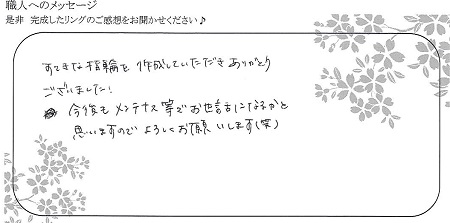 職人へのメッセージ
是非 完成したリングのご感想をお聞かせください♪
すてきな指輪を 作成していただき ありがとう
ございました!
今後も メンテナス等で お世話になるかと
思いますので よろしくお願いします(笑)